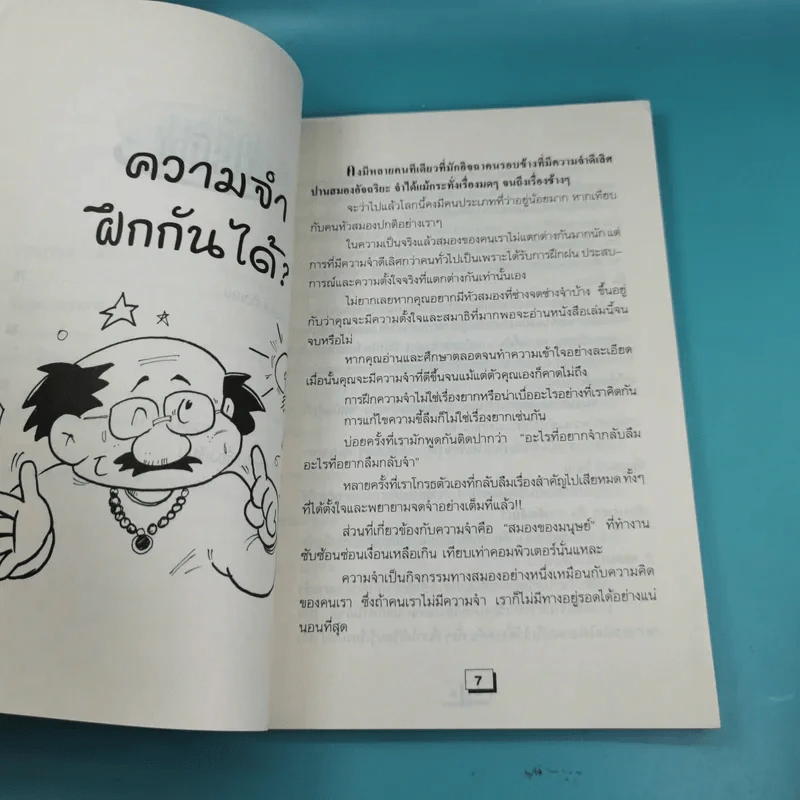 ความจำ
ฝึกกันได้?
คงมีหลายคนทีเดียวที่มักอิจฉาคนรอบข้างที่มีความจำดีเลิศ
ปานสมองอัจฉริยะ จำได้แม้กระทั่งเรื่องมดๆ จนถึงเรื่องช้างๆ
จะว่าไปแล้วโลกนี้คงมีคนประเภทที่ว่าอยู่น้อยมาก หากเทียบ
กับคนหัวสมองปกติอย่างเราๆ
ในความเป็นจริงแล้วสมองของคนเราไม่แตกต่างกันมากนัก แต่
การที่มีความจำดีเลิศกว่าคนทั่วไปเป็นเพราะได้รับการฝึกฝน ประสบ-
การณ์และความตั้งใจจริงที่แตกต่างกันเท่านั้นเอง
ไม่ยากเลยหากคุณอยากมีหัวสมองที่ช่างจดช่างจำบ้าง ขึ้นอยู่
กับว่าคุณจะมีความตั้งใจและสมาธิที่มากพอจะอ่านหนังสือเล่มนี้จน
จบหรือไม่
หากคุณอ่านและศึกษาตลอดจนทำความเข้าใจอย่างละเอียด
เมื่อนั้นคุณจะมีความจำที่ดีขึ้นจนแม้แต่ตัวคุณเองก็คาดไม่ถึง
การฝึกความจำไม่ใช่เรื่องยากหรือน่าเบื่ออะไรอย่างที่เราคิดกัน
การแก้ไขความขี้ลืมก็ไม่ใช่เรื่องยากเช่นกัน
บ่อยครั้งที่เรามักพูดกันติดปากว่า “อะไรที่อยากจำกลับลืม
อะไรที่อยากลืมกลับจำ”
หลายครั้งที่เราโกรธตัวเองที่กลับลืมเรื่องสำคัญไปเสียหมด ทั้งๆ
ที่ได้ตั้งใจและพยายามจดจำอย่างเต็มที่แล้ว!!
ส่วนที่เกี่ยวข้องกับความจำคือ “สมองของมนุษย์” ที่ทำงาน
ซับซ้อนซ่อนเงื่อนเหลือเกิน เทียบเท่าคอมพิวเตอร์นั่นแหละ
ความจำเป็นกิจกรรมทางสมองอย่างหนึ่งเหมือนกับความคิด
ของคนเรา ซึ่งถ้าคนเราไม่มีความจำ เราก็ไม่มีทางอยู่รอดได้อย่างแน่
นอนที่สุด
7